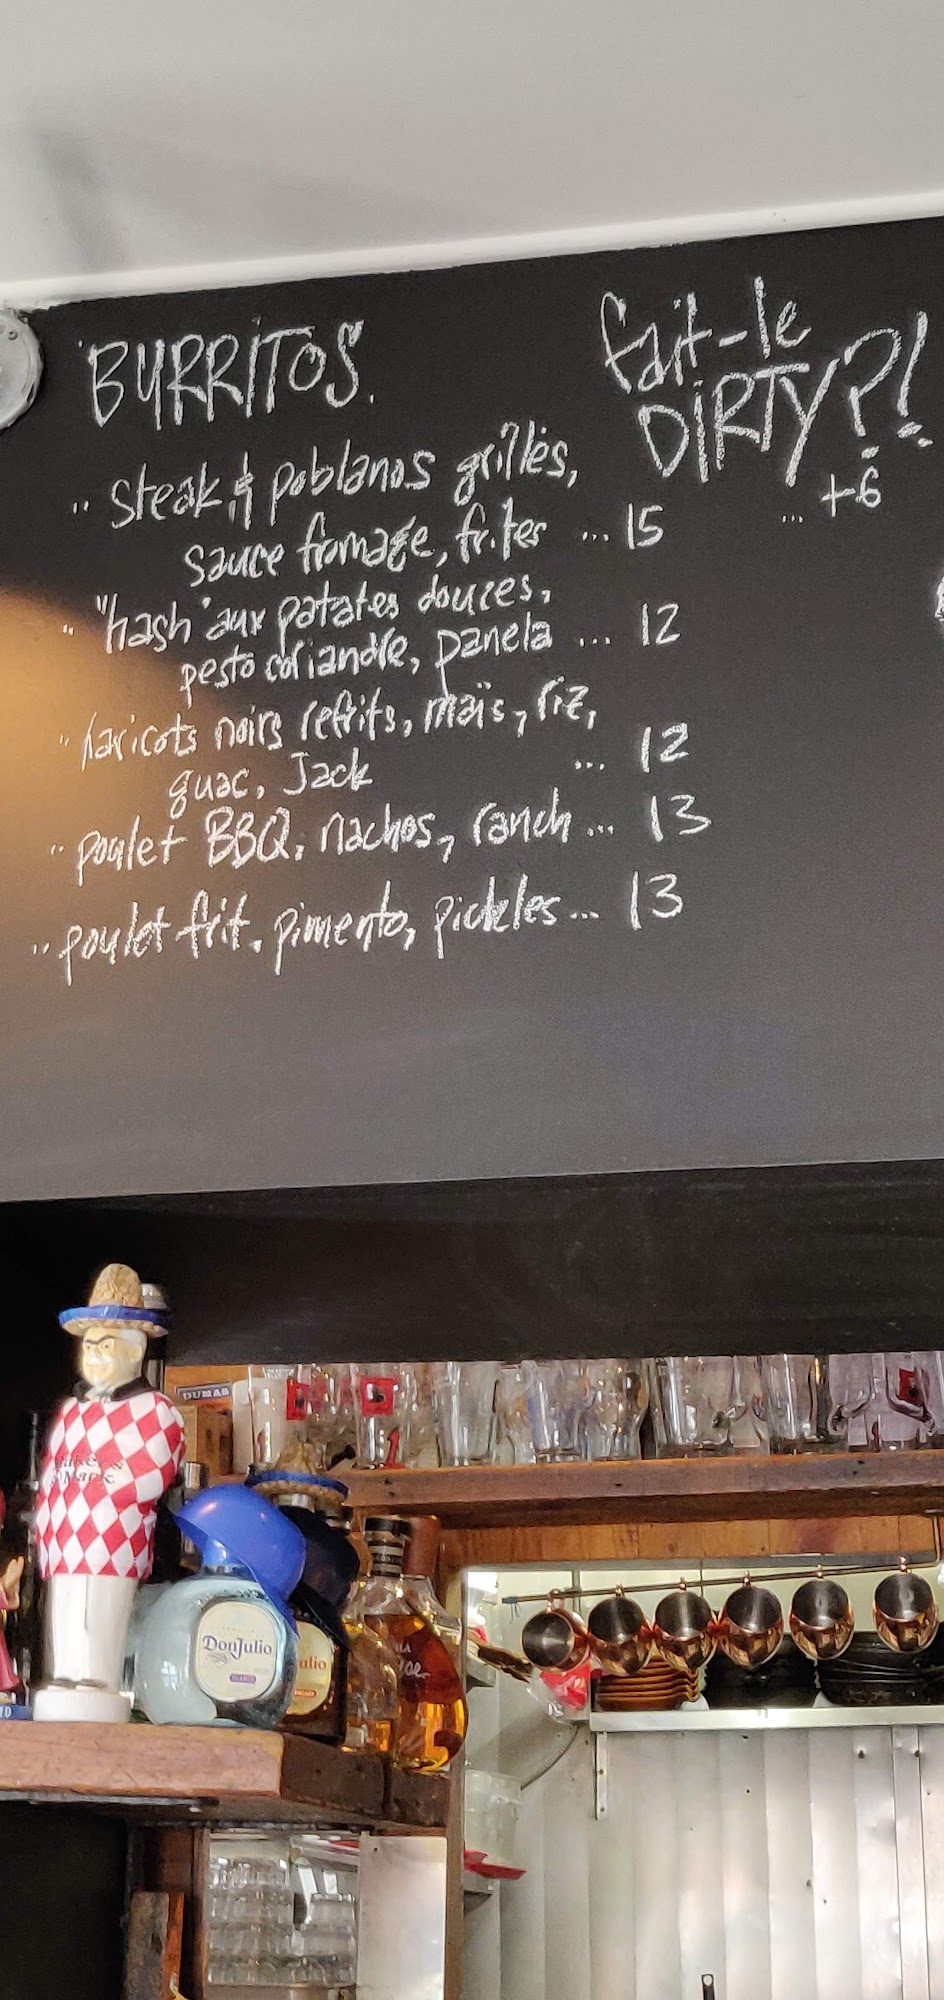 BURRITOS.
fait-le
DIRTY?!
... +6
" Steak & poblanos grillés,
sauce fromage, frites ... 15
" "hash" aux patates douces,
pesto coriandre, panela ... 12
" haricots noirs refrits, maïs, riz,
guac, Jack ... 12
" poulet BBQ, nachos, ranch ... 13
" poulet frit, pimento, pickles ... 13
DUMAS
Maker's
Mark
DonJulio
BLANCO
ulio